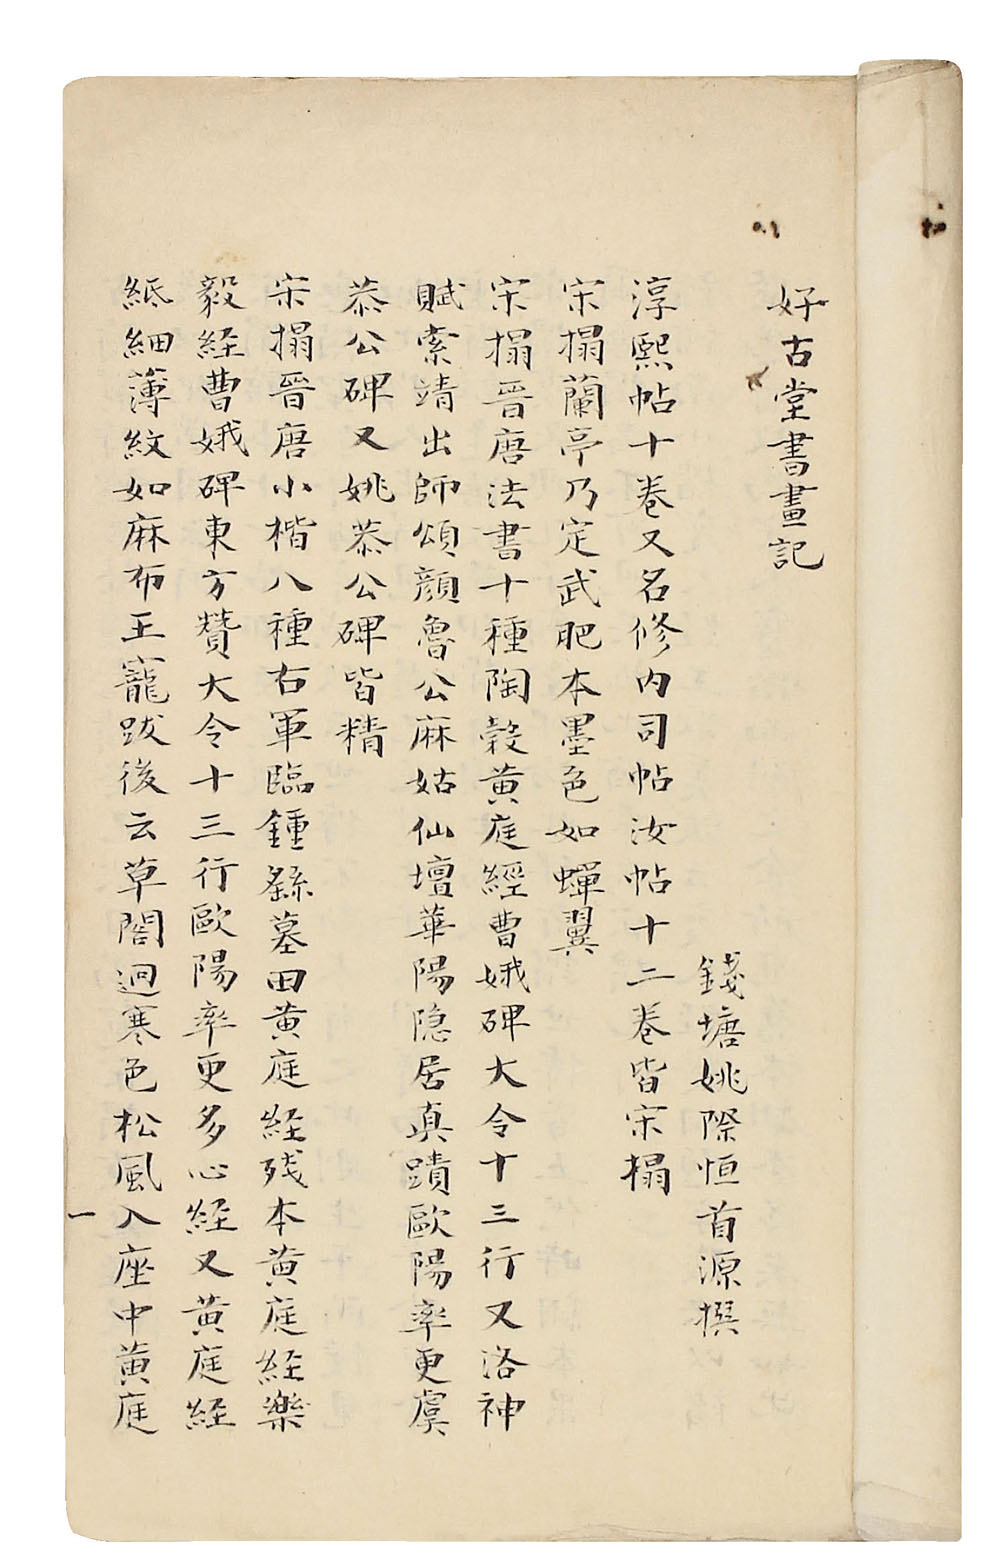 好古堂書畫記
錢塘姚際恒首源撰
淳熙帖十卷又名修内司帖汝帖十二卷皆宋搨
宋搨蘭亭乃定武肥本墨色如蟬翼
宋搨晉唐法書十種陶穀黄庭經曹娥碑大令十三行又洛神
賦索靖出師頌顔魯公麻姑仙壇華陽隐居真蹟歐陽率更虞
恭公碑又姚恭公碑皆精
宋搨晉唐小楷八種右軍臨鍾繇墓田黄庭経残本黄庭経樂
毅経曹娥碑東方賛大令十三行歐陽率更多心経又黄庭経
紙細薄紋如麻布王寵跋後云草閣迥寒色松風入座中黄庭
一